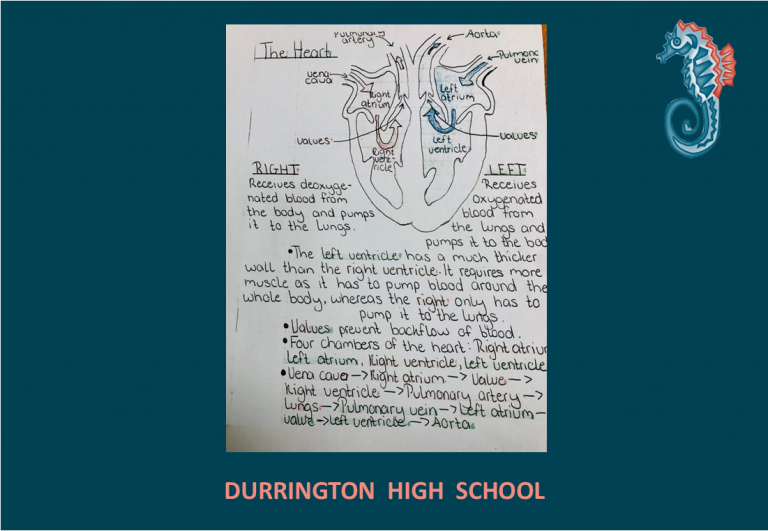 The Heart
Pulmonary
artery
Aorta
Pulmonc
vein
vena
cava
Right
atrium
Left
atrium
values
values
Right
ventricle
Left
ventricle
RIGHT
Receives deoxyge-
nated blood from
the body and pumps
it to the lungs.
LEFT
Receives
oxygenated
blood from
the lungs and
pumps it to the bod
•The left ventricle has a much thicker
wall than the right ventricle. It requires more
muscle as it has to pump blood around the
whole body, whereas the right only has to
pump it to the lungs.
•Values prevent backflow of blood.
•Four chambers of the heart: Right atriur
Left atrium, Right ventricle, Left ventricle
•Vena cava —> Right atrium —> Value —>
Right ventricle —> Pulmonary artery —>
Lungs —> Pulmonary vein —> Left atrium —
value —> Left ventricle —> Aorta
DURRINGTON HIGH SCHOOL